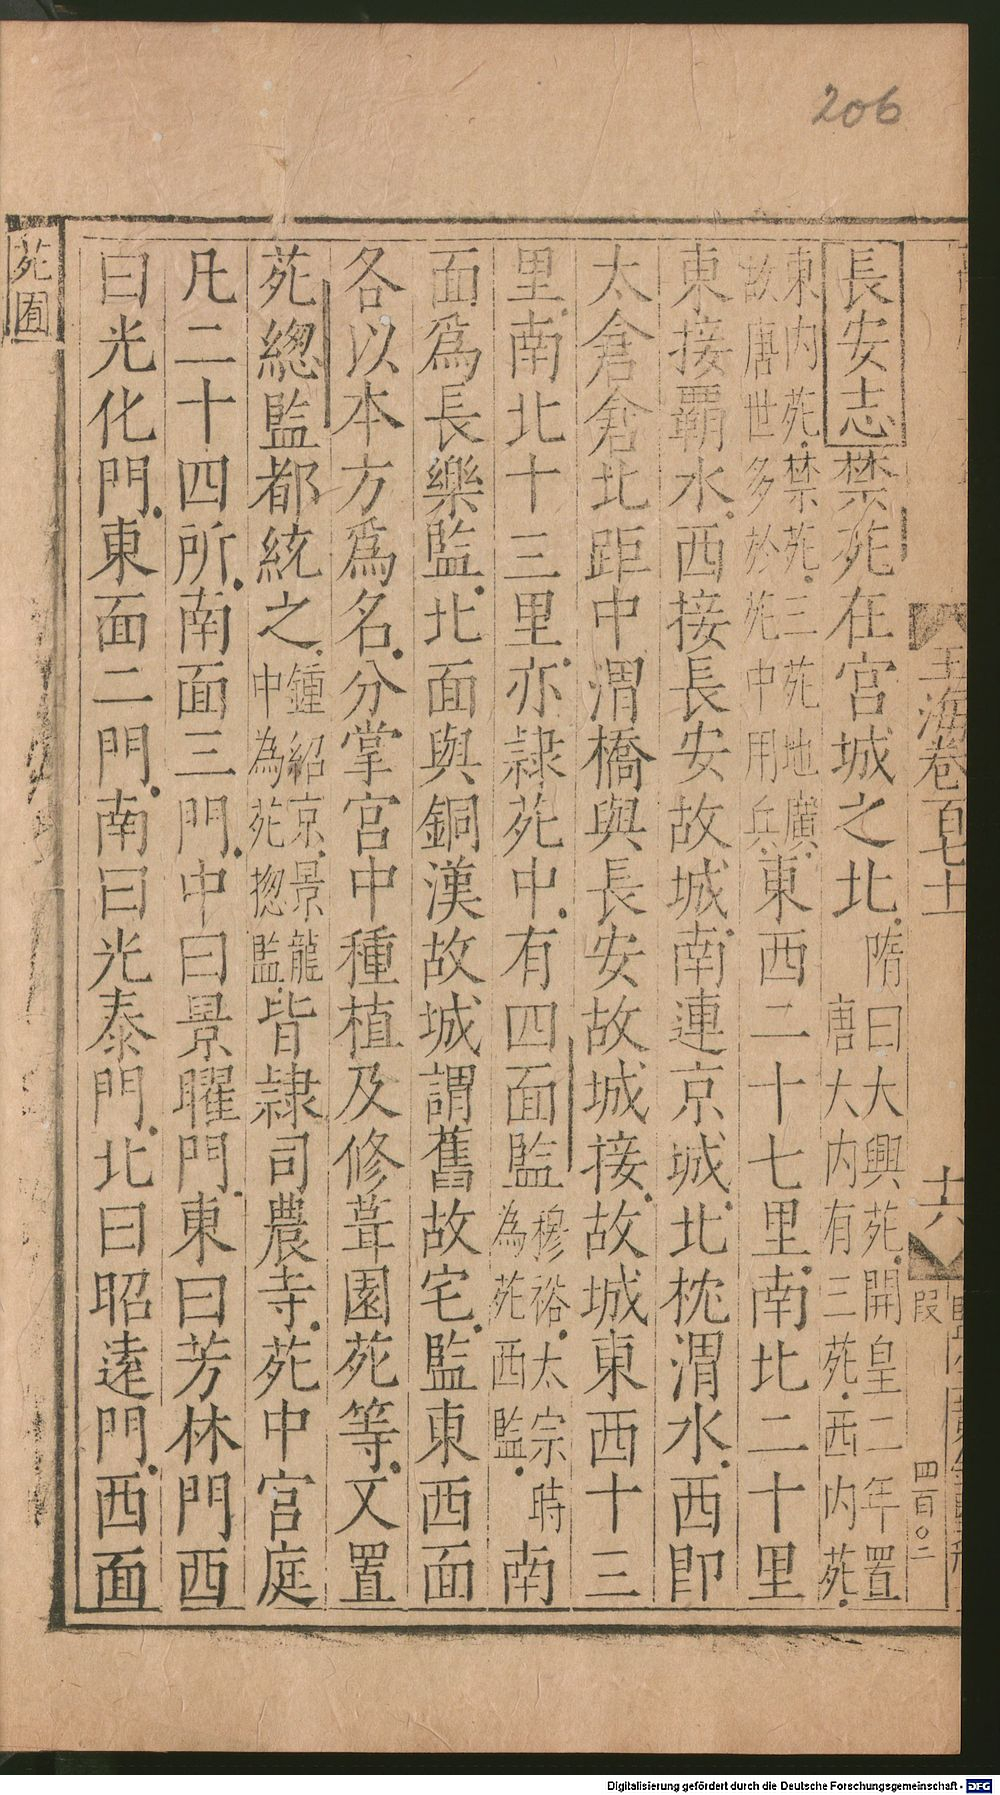 206
玉海卷百七十
十六
四百〇二
長安志禁苑在宮城之北隋曰大興苑開皇二年置
唐大内有三苑西内苑
東内苑禁苑三苑地廣
故唐世多於苑中用兵東西二十七里南北二十里
東接霸水西接長安故城南連京城北枕渭水西即
太倉倉北距中渭橋與長安故城接故城東西十三
里南北十三里亦隷苑中有四面監穆裕太宗時
為苑西監南
面爲長樂監北面與銅漢故城謂舊故宅監東西面
各以本方爲名分掌宮中種植及修葺園苑等又置
苑緫監都統之鍾紹京景龍
中為苑揔監皆隷司農寺苑中宮庭
凡二十四所南面三門中曰景曜門東曰芳林門西
曰光化門東面二門南曰光泰門北曰昭遠門西面
苑囿
Digitalisierung gefördert durch die Deutsche Forschungsgemeinschaft - DFG